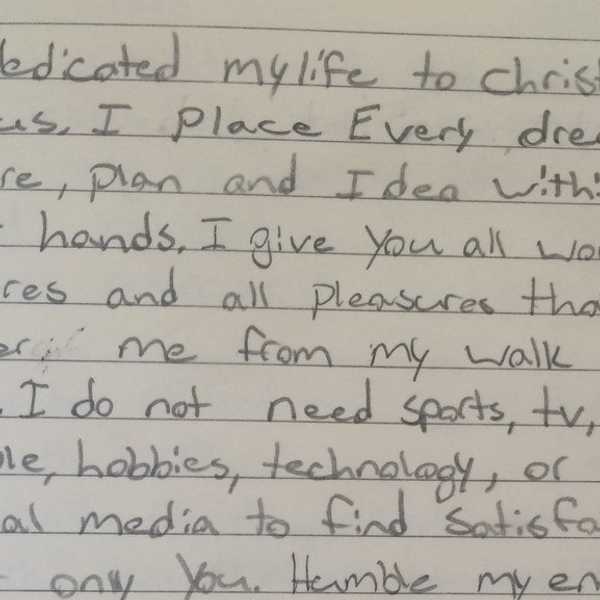 edicated my life to Christ
us, I Place Every drea
re, plan and Idea with
hands, I give You all wo
res and all pleasures tha
er me from my walk
. I do not need sports, tv,
le, hobbies, technology, or
al media to find Satisfa
ony You. Humble my en